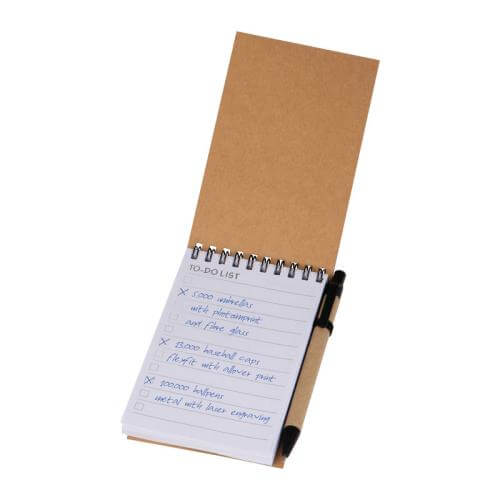 TO-DO LIST
5.000 umbrellas
with photoprint
and fibre glass
13.000 baseball caps
flexfit with allover print
200.000 ballpens
metal with laser engraving